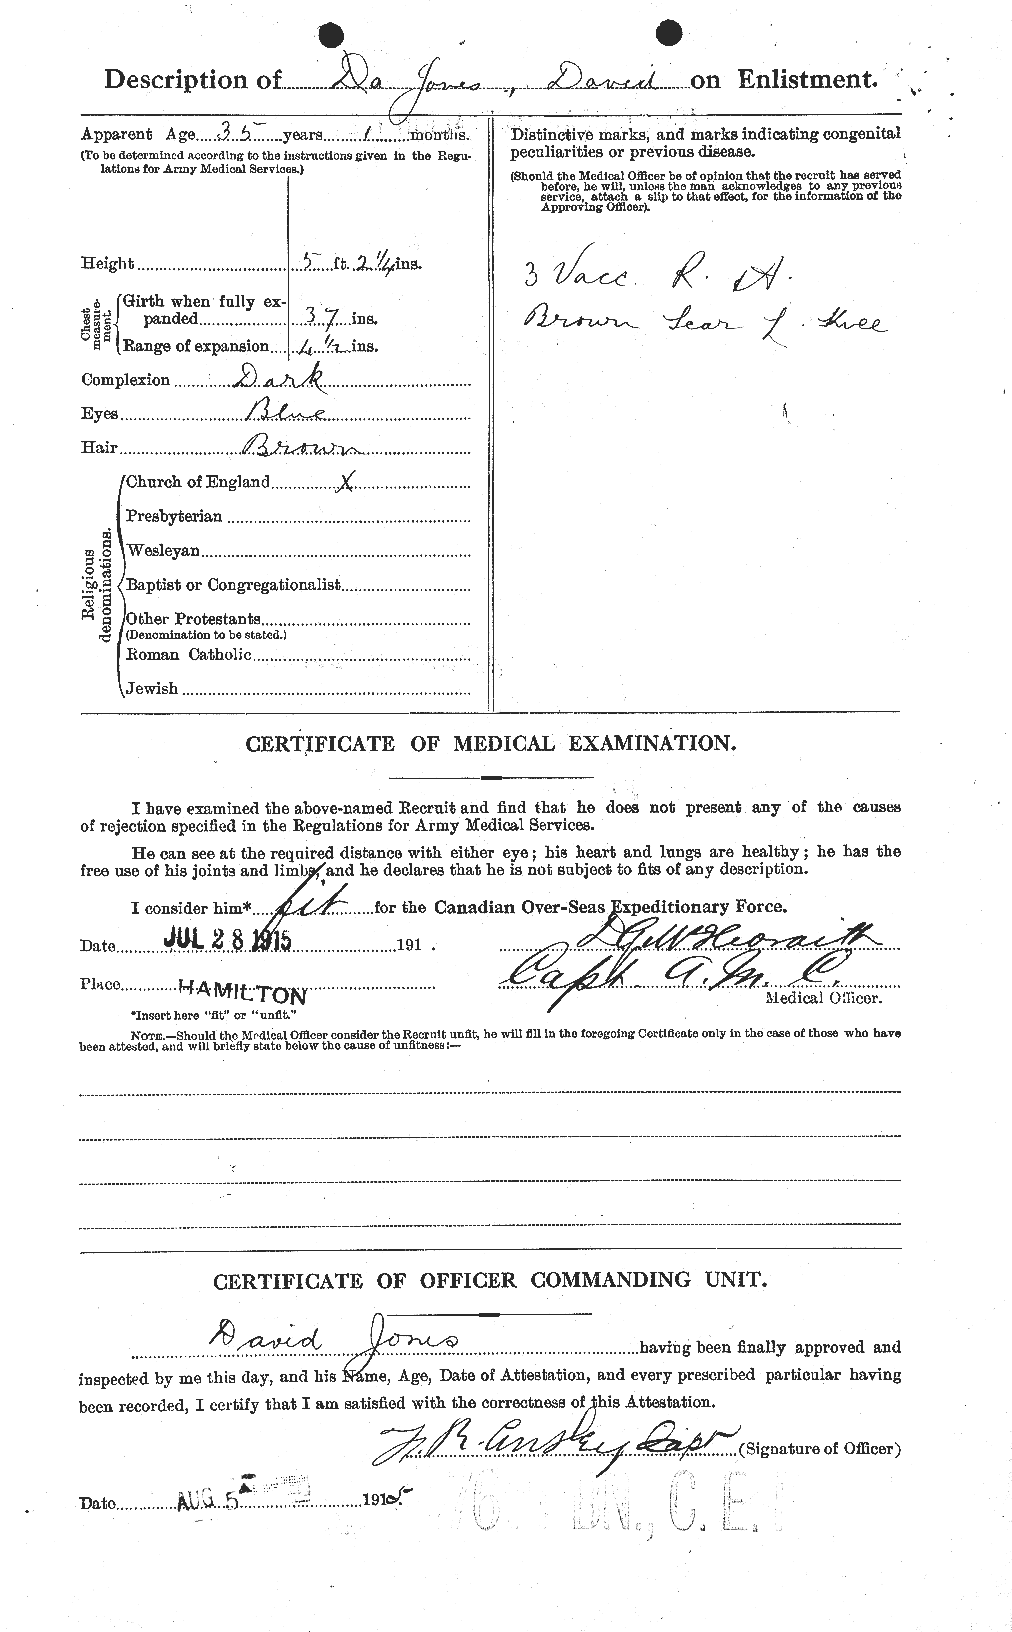 Description of Da Jones, David on Enlistment.
Apparent Age 35 years 1 months.
(To be determined according to the instructions given in the Regu-
lations for Army Medical Services.)
Height 5 ft. 2 1/4 ins.
Chest measure-
ment.
Girth when fully ex-
panded 37 ins.
Range of expansion 4 1/2 ins.
Complexion Dark
Eyes Blue
Hair Brown
Religious
denominations.
Church of England X
Presbyterian
Wesleyan
Baptist or Congregationalist
Other Protestants
(Denomination to be stated.)
Roman Catholic
Jewish
Distinctive marks, and marks indicating congenital
peculiarities or previous disease.
(Should the Medical Officer be of opinion that the recruit has served
before, he will, unless the man acknowledges to any previous
service, attach a slip to that effect, for the information of the
Approving Officer).
3 Vacc. R. A.
Brown Scar L. Knee
CERTIFICATE OF MEDICAL EXAMINATION.
I have examined the above-named Recruit and find that he does not present any of the causes
of rejection specified in the Regulations for Army Medical Services.
He can see at the required distance with either eye; his heart and lungs are healthy; he has the
free use of his joints and limbs, and he declares that he is not subject to fits of any description.
I consider him* fit for the Canadian Over-Seas Expeditionary Force.
Date JUL 28 1915 191 .
Capt. A. M. C.
Place HAMILTON
Medical Officer.
*Insert here "fit" or "unfit."
NOTE.—Should the Medical Officer consider the Recruit unfit, he will fill in the foregoing Certificate only in the case of those who have
been attested, and will briefly state below the cause of unfitness:—
CERTIFICATE OF OFFICER COMMANDING UNIT.
David Jones having been finally approved and
inspected by me this day, and his Name, Age, Date of Attestation, and every prescribed particular having
been recorded, I certify that I am satisfied with the correctness of this Attestation.
Capt (Signature of Officer)
Date AUG 5 1915 BN., C. E.